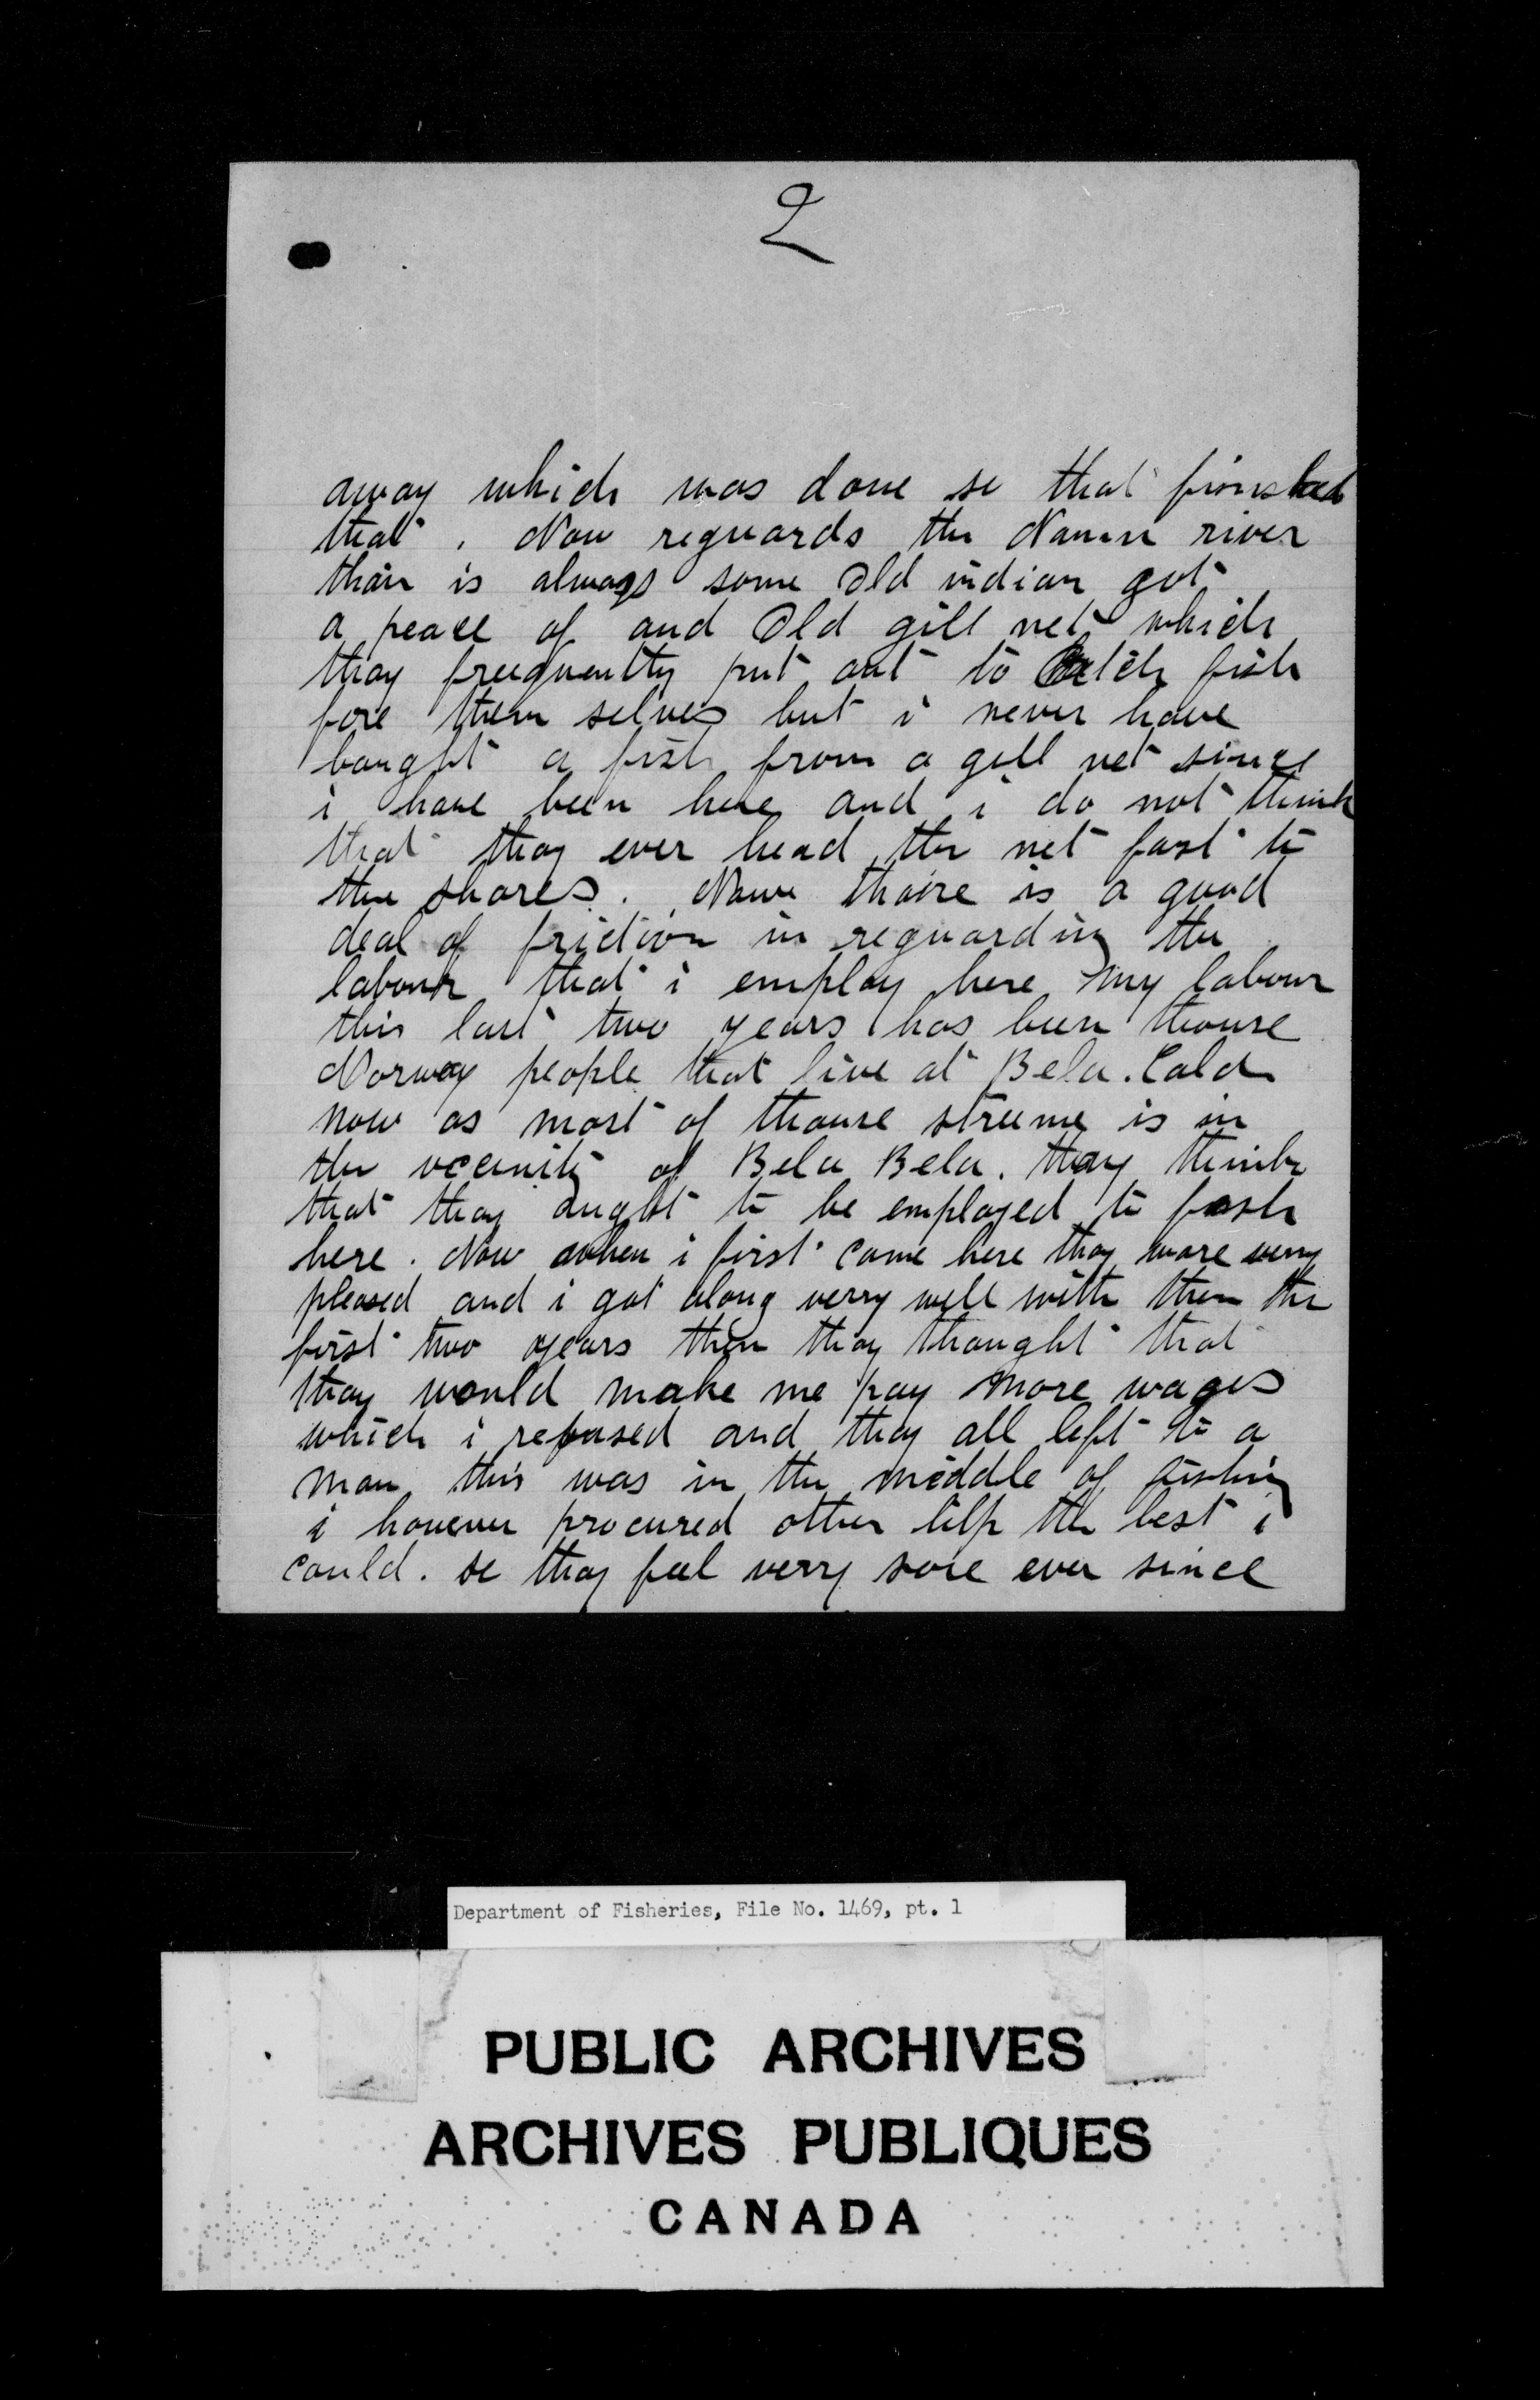 2
away which was done so that finished
that. Now reguards the Namu river
thair is always some old indian got
a peace of and Old gill net which
thay freequently put out to Catch fish
fore them selves but i never have
baught a fish from a gill net since
i have been here and i do not think
that thay ever head the net fast to
the shores. Now thaire is a good
deal of friction in reguarding the
labour that i employ here my labour
this last two years has been thouse
Norway people that live at Bela. Cola
now as most of thouse streeme is in
the veceinity of Bela Bela. thay think
that thay aught to be employed to fish
here. Now when i first come here thay ware verry
pleased and i got along verry well with them the
first two years then thay thaught that
thay would make me pay more wages
which i refused and thay all left to a
man this was in the middle of fishing
i however procured other help the best i
could. so thay feel verry sore ever since
Department of Fisheries, File No. 1469, pt. 1
PUBLIC ARCHIVES
ARCHIVES PUBLIQUES
CANADA